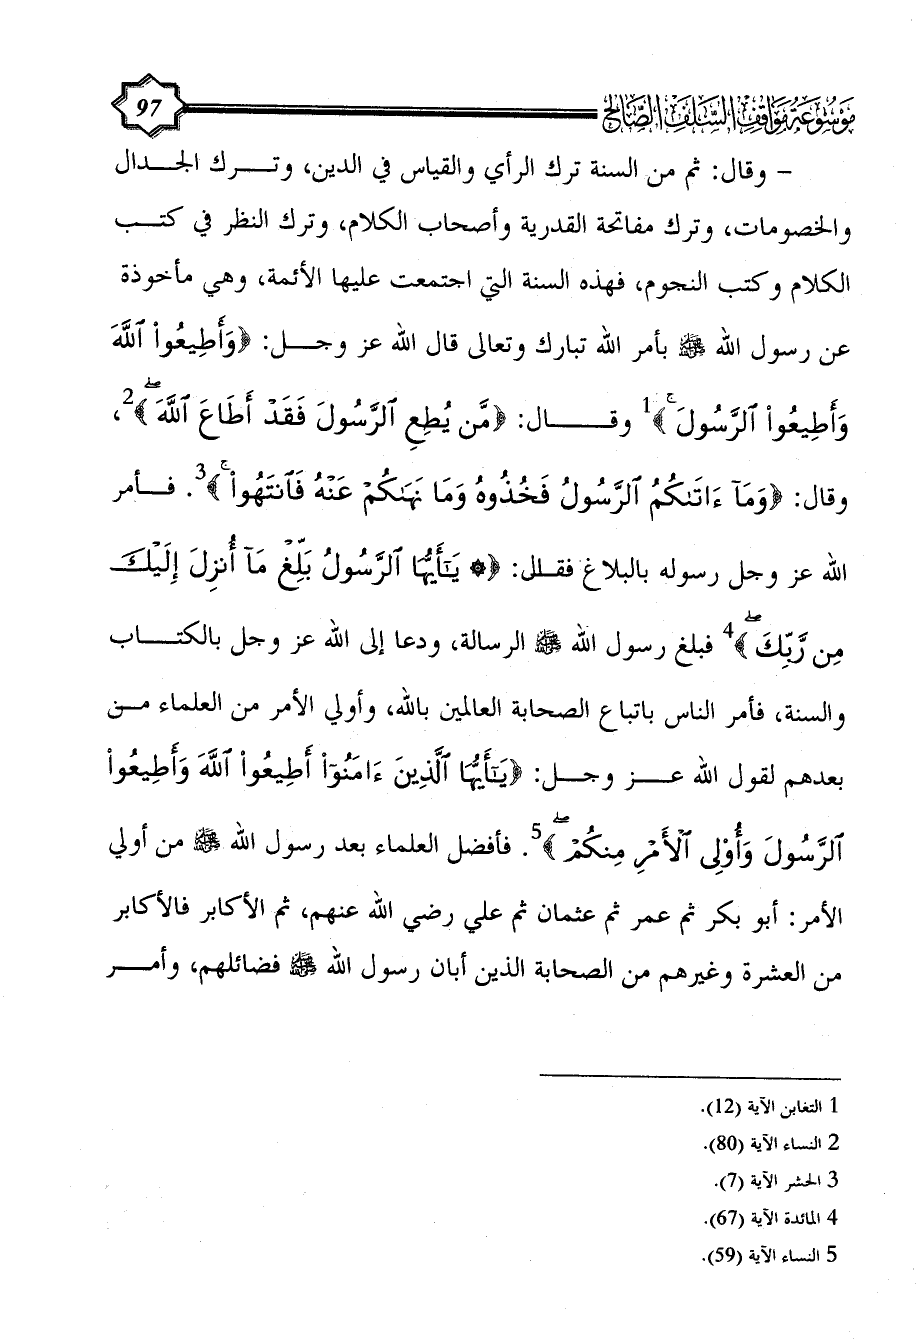 موسوعة مواقف السلف الصالح
97
– وقال: ثم من السنة ترك الرأي والقياس في الدين، وتـــرك الجـدال
والخصومات، وترك مفاتحة القدرية وأصحاب الكلام، وترك النظر في كتـــب
الكلام وكتب النجوم، فهذه السنة التي اجتمعت عليها الأئمة، وهي مأخوذة
عن رسول الله ﷺ بأمر الله تبارك وتعالى قال الله عز وجـــل: ﴿وَأَطِيعُواْ ٱللَّهَ
وَأَطِيعُواْ ٱلرَّسُولَۚ﴾1 وقـــــال: ﴿مَّن يُطِعِ ٱلرَّسُولَ فَقَدۡ أَطَاعَ ٱللَّهَۖ﴾2،
وقال: ﴿وَمَآ ءَاتَىٰكُمُ ٱلرَّسُولُ فَخُذُوهُ وَمَا نَهَىٰكُمۡ عَنۡهُ فَٱنتَهُواْۚ﴾3. فـــأمر
الله عز وجل رسوله بالبلاغ فقـال: ﴿۞ يَٰٓأَيُّهَا ٱلرَّسُولُ بَلِّغۡ مَآ أُنزِلَ إِلَيۡكَ
مِن رَّبِّكَۖ﴾4 فبلغ رسول الله ﷺ الرسالة، ودعا إلى الله عز وجل بالكتـــاب
والسنة، فأمر الناس باتباع الصحابة العالمين بالله، وأولي الأمر من العلماء مـن
بعدهم لقول الله عـــز وجـــل: ﴿يَٰٓأَيُّهَا ٱلَّذِينَ ءَامَنُوٓاْ أَطِيعُواْ ٱللَّهَ وَأَطِيعُواْ
ٱلرَّسُولَ وَأُوْلِي ٱلۡأَمۡرِ مِنكُمۡۖ﴾5. فأفضل العلماء بعد رسول الله ﷺ من أولي
الأمر: أبو بكر ثم عمر ثم عثمان ثم علي رضي الله عنهم، ثم الأكابر فالأكابر
من العشرة وغيرهم من الصحابة الذين أبان رسول الله ﷺ فضائلهم، وأمـــر
1 التغابن الآية (12).
2 النساء الآية (80).
3 الحشر الآية (7).
4 المائدة الآية (67).
5 النساء الآية (59).